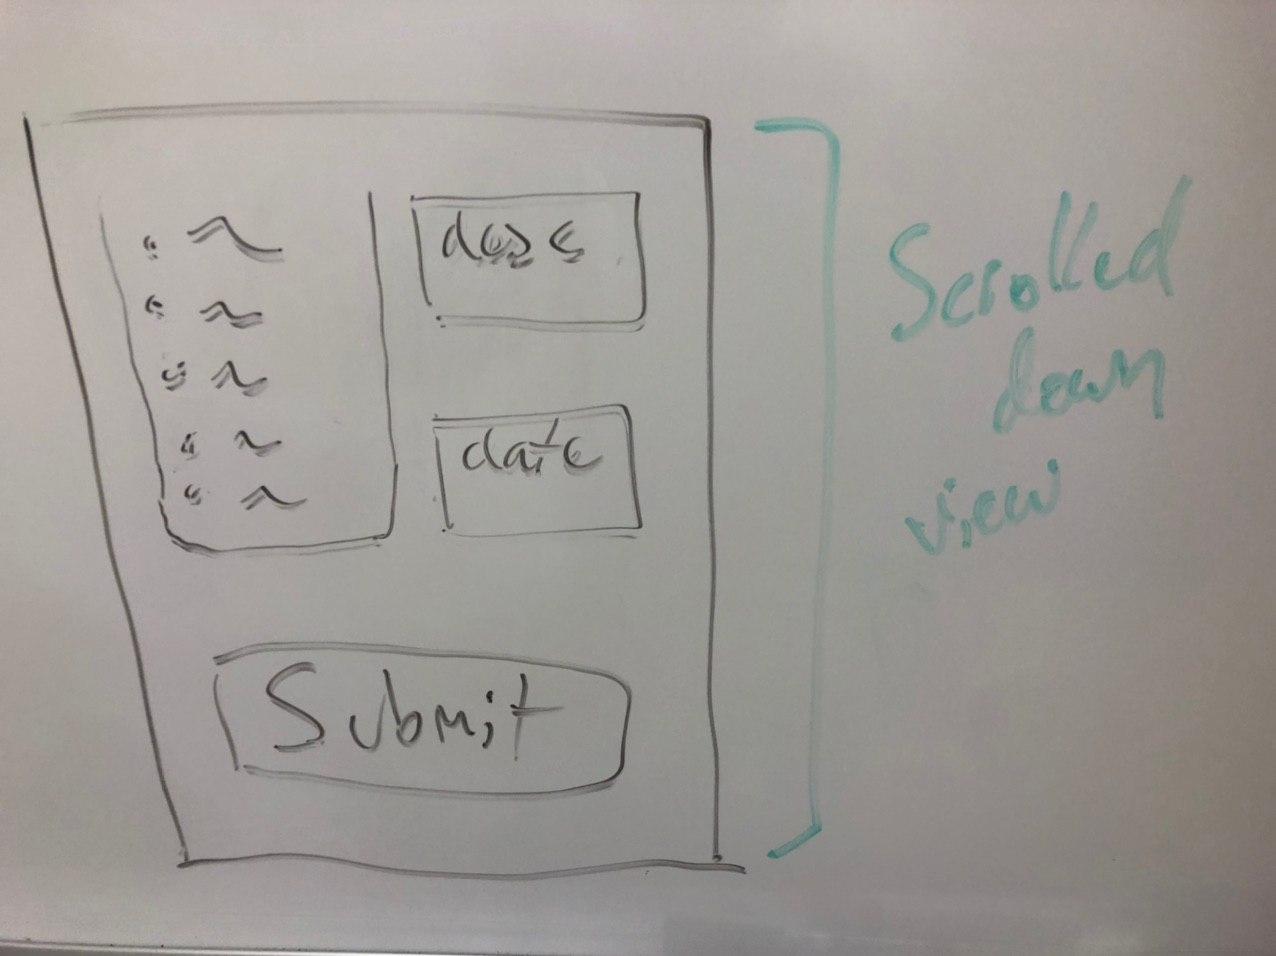 date
Submit
Scrolled
down
view